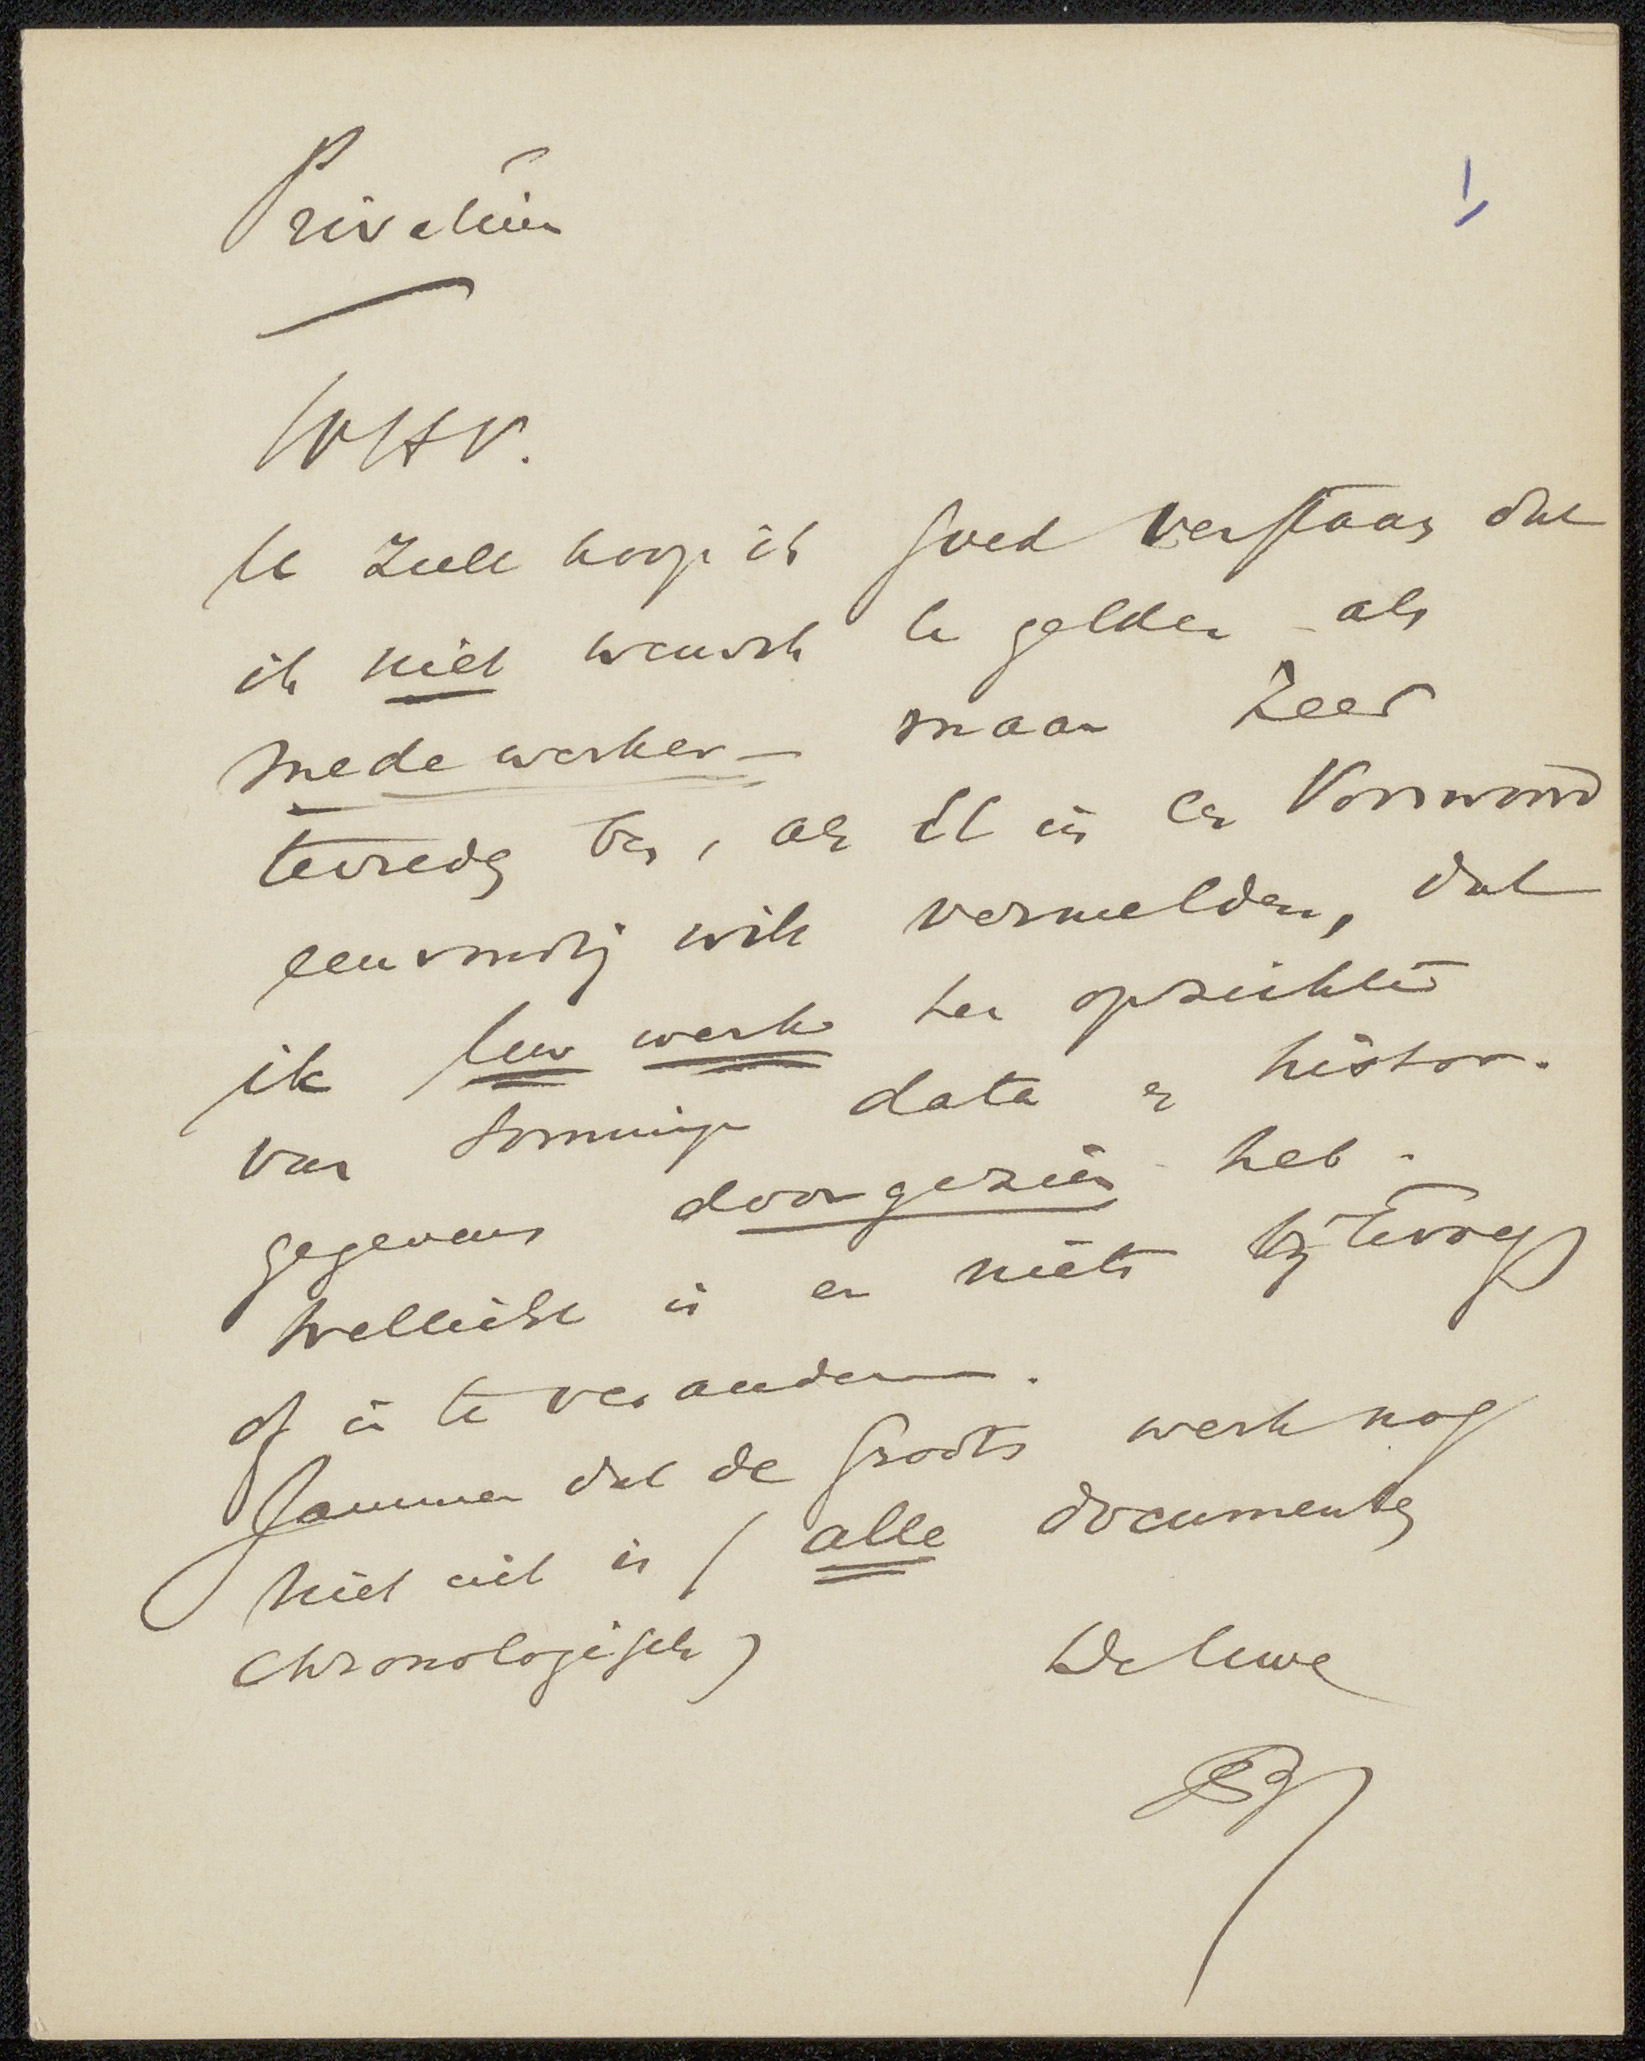 Privatim
1
WHV.
U zult hoop ik goed verstaan dat
ik niet wensch te gelden als
medewerker – maar zeer
tevreden ben, als U in een Voorwoord
eenvoudig wilt vermelden, dat
ik Uw werk ten opzichte
van sommige data en histor.
gegevens doorgezien heb.
Wellicht is er niets bij te voegen
of in te veranderen.
Jammer dat de Groots werk nog
niet uit is (alle documenten
chronologisch)
de Uwe